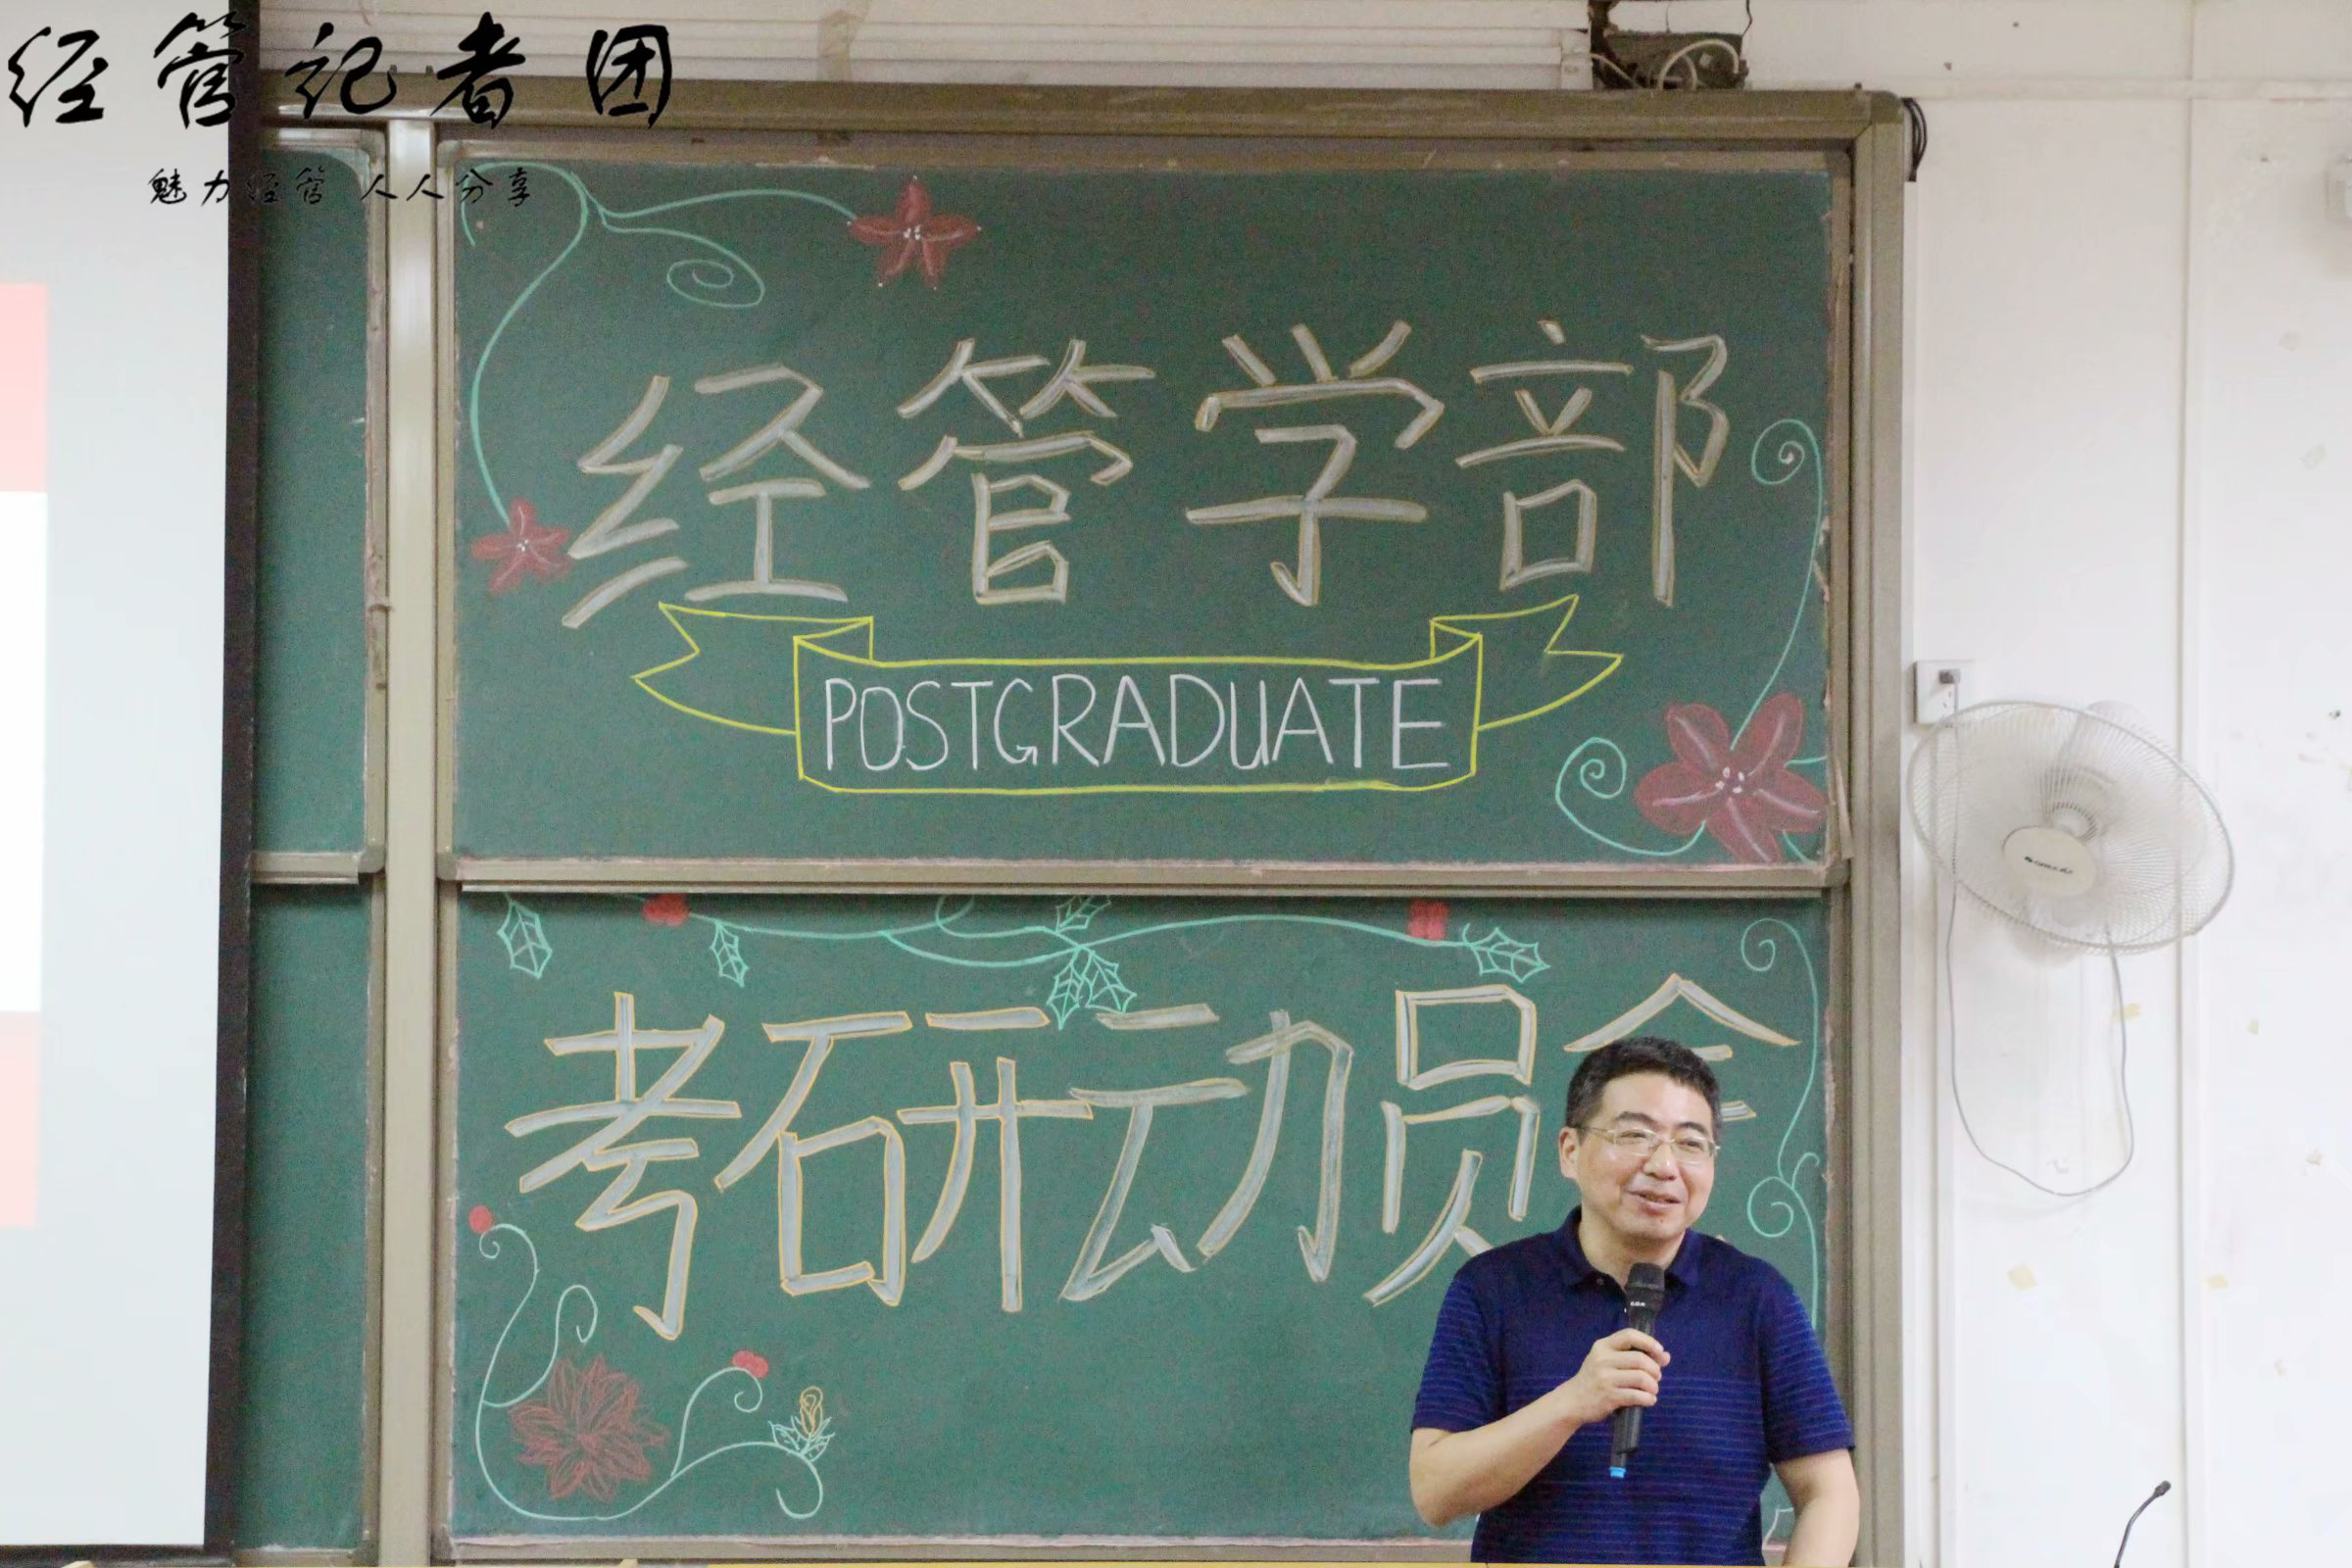 经管记者团
魅力经管 人人分享
经管学部
POSTGRADUATE
考研动员会